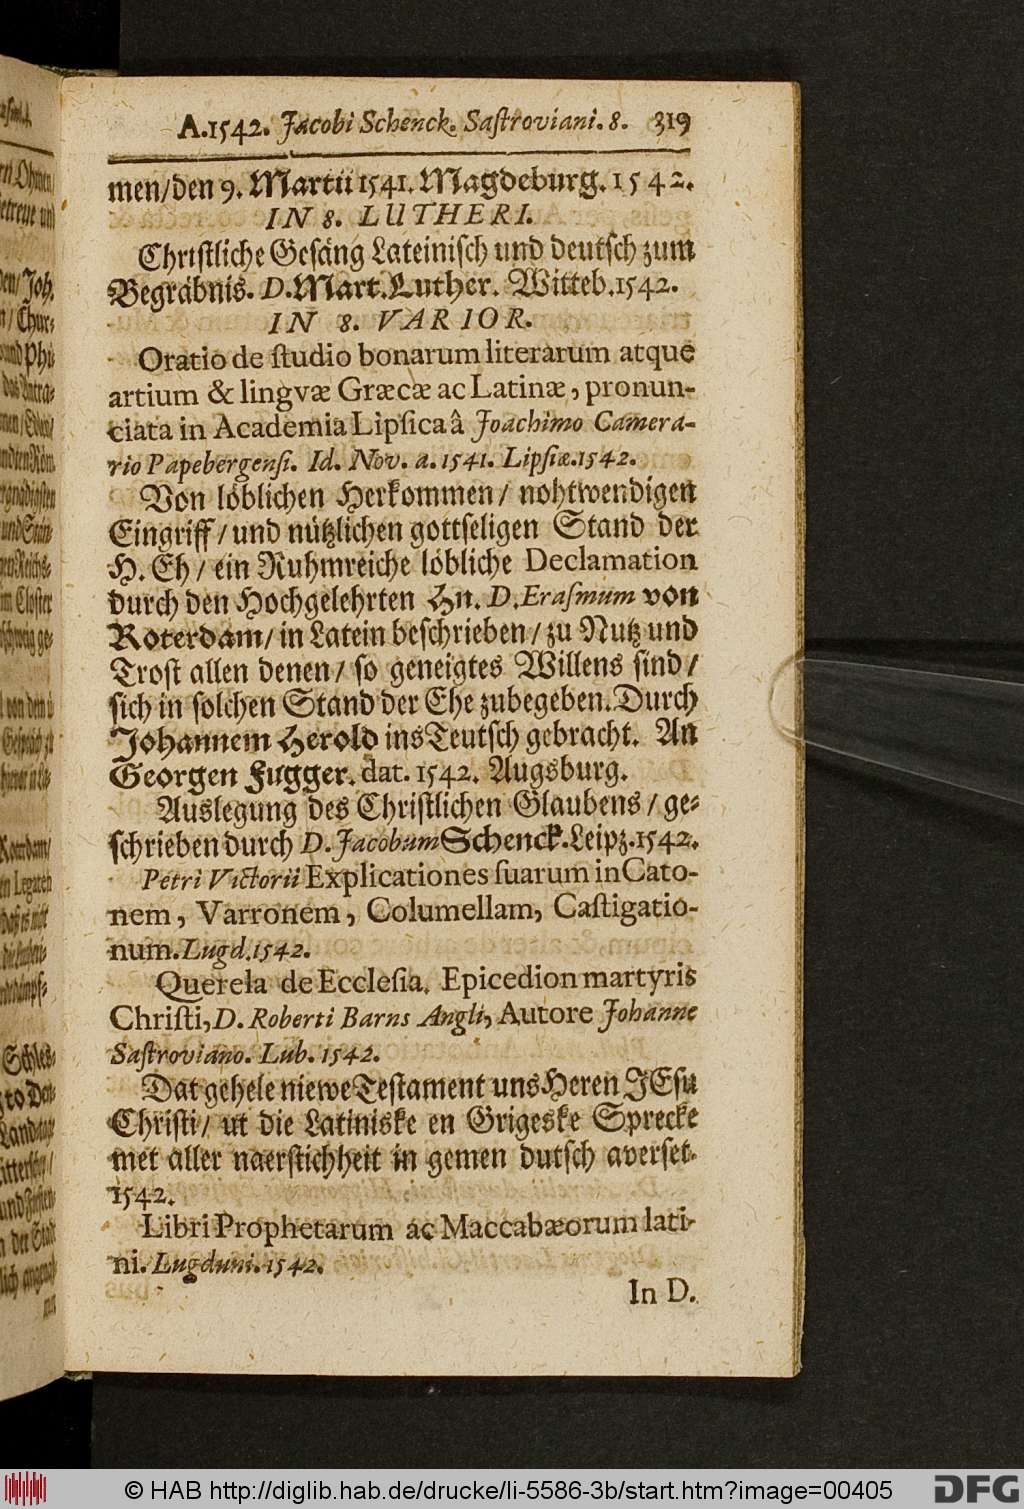 A.1542. Jacobi Schenck. Sastroviani. 8. 319
men/den 9. Martii 1541. Magdeburg. 1542.
IN 8. LUTHERI.
Christliche Gesäng Lateinisch und deutsch zum
Begräbnis. D. Mart. Luther. Witteb. 1542.
IN 8. VARIOR.
Oratio de studio bonarum literarum atque
artium & lingvæ Græcæ ac Latinæ, pronun-
ciata in Academia Lipsica â Joachimo Camera-
rio Papebergensi. Id. Nov. a. 1541. Lipsiæ. 1542.
Von löblichen Herkommen/ nohtwendigen
Eingriff/ und nützlichen gottseligen Stand der
H. Eh/ ein Ruhmreiche löbliche Declamation
durch den Hochgelehrten Hn. D. Erasmum von
Roterdam/ in Latein beschrieben/ zu Nutz und
Trost allen denen/ so geneigtes Willens sind/
sich in solchen Stand der Ehe zubegeben. Durch
Johannem Herold ins Teutsch gebracht. An
Georgen Fugger. dat. 1542. Augsburg.
Auslegung des Christlichen Glaubens/ ge-
schrieben durch D. Jacobum Schenck. Leipz. 1542.
Petri Victorii Explicationes suarum in Cato-
nem, Varronem, Columellam, Castigatio-
num. Lugd. 1542.
Querela de Ecclesia. Epicedion martyris
Christi, D. Roberti Barns Angli, Autore Johanne
Sastroviano. Lub. 1542.
Dat gehele niewe Testament uns Heren JEsu
Christi/ ut die Latiniske en Grigeske Sprecke
met aller naerstichheit in gemen dutsch averset.
1542.
Libri Prophetarum ac Maccabæorum lati-
ni. Lugduni. 1542.
In D.
© HAB http://diglib.hab.de/drucke/li-5586-3b/start.htm?image=00405
DFG